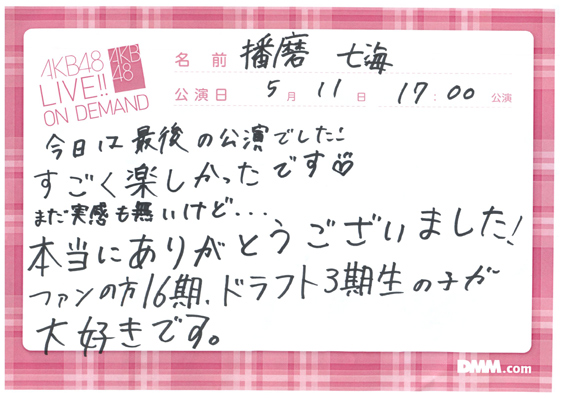 AKB48
LIVE!!
ON DEMAND
AKB
48
名前 播磨 七海
公演日 5月 11日 17:00 公演
今日は最後の公演でした!
すごく楽しかったです♡
まだ実感も無いけど・・・
本当にありがとうございました!
ファンの方16期、ドラフト3期生の子が
大好きです。
DMM.com